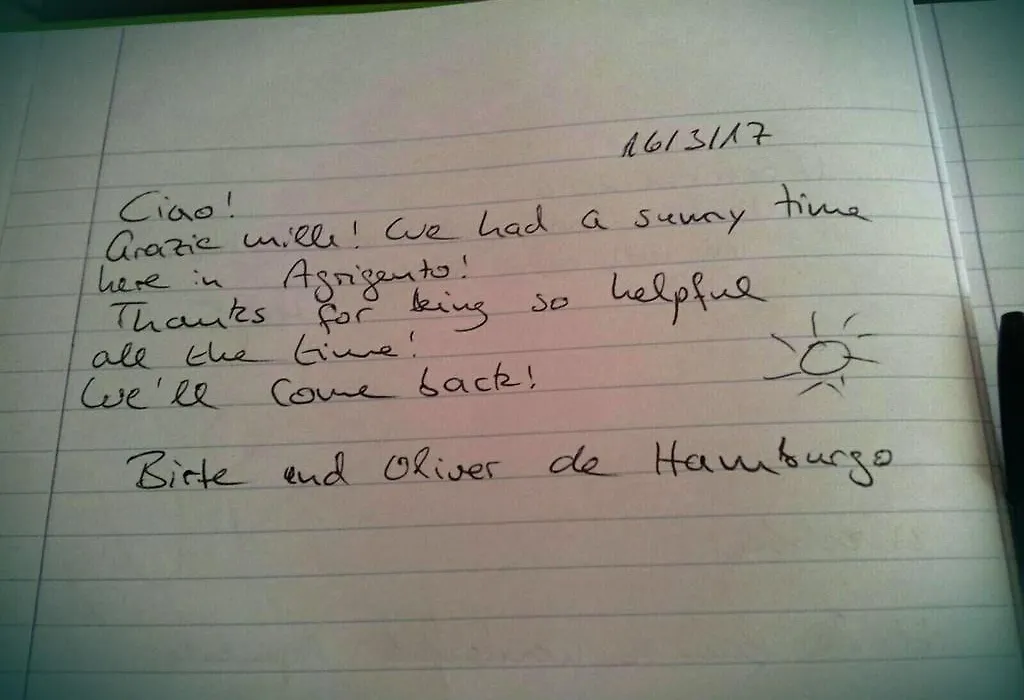 16/3/17
Ciao!
Grazie mille! We had a sunny time
here in Agrigento!
Thanks for being so helpful
all the time!
We'll come back!
Birte und Oliver de Hamburgo